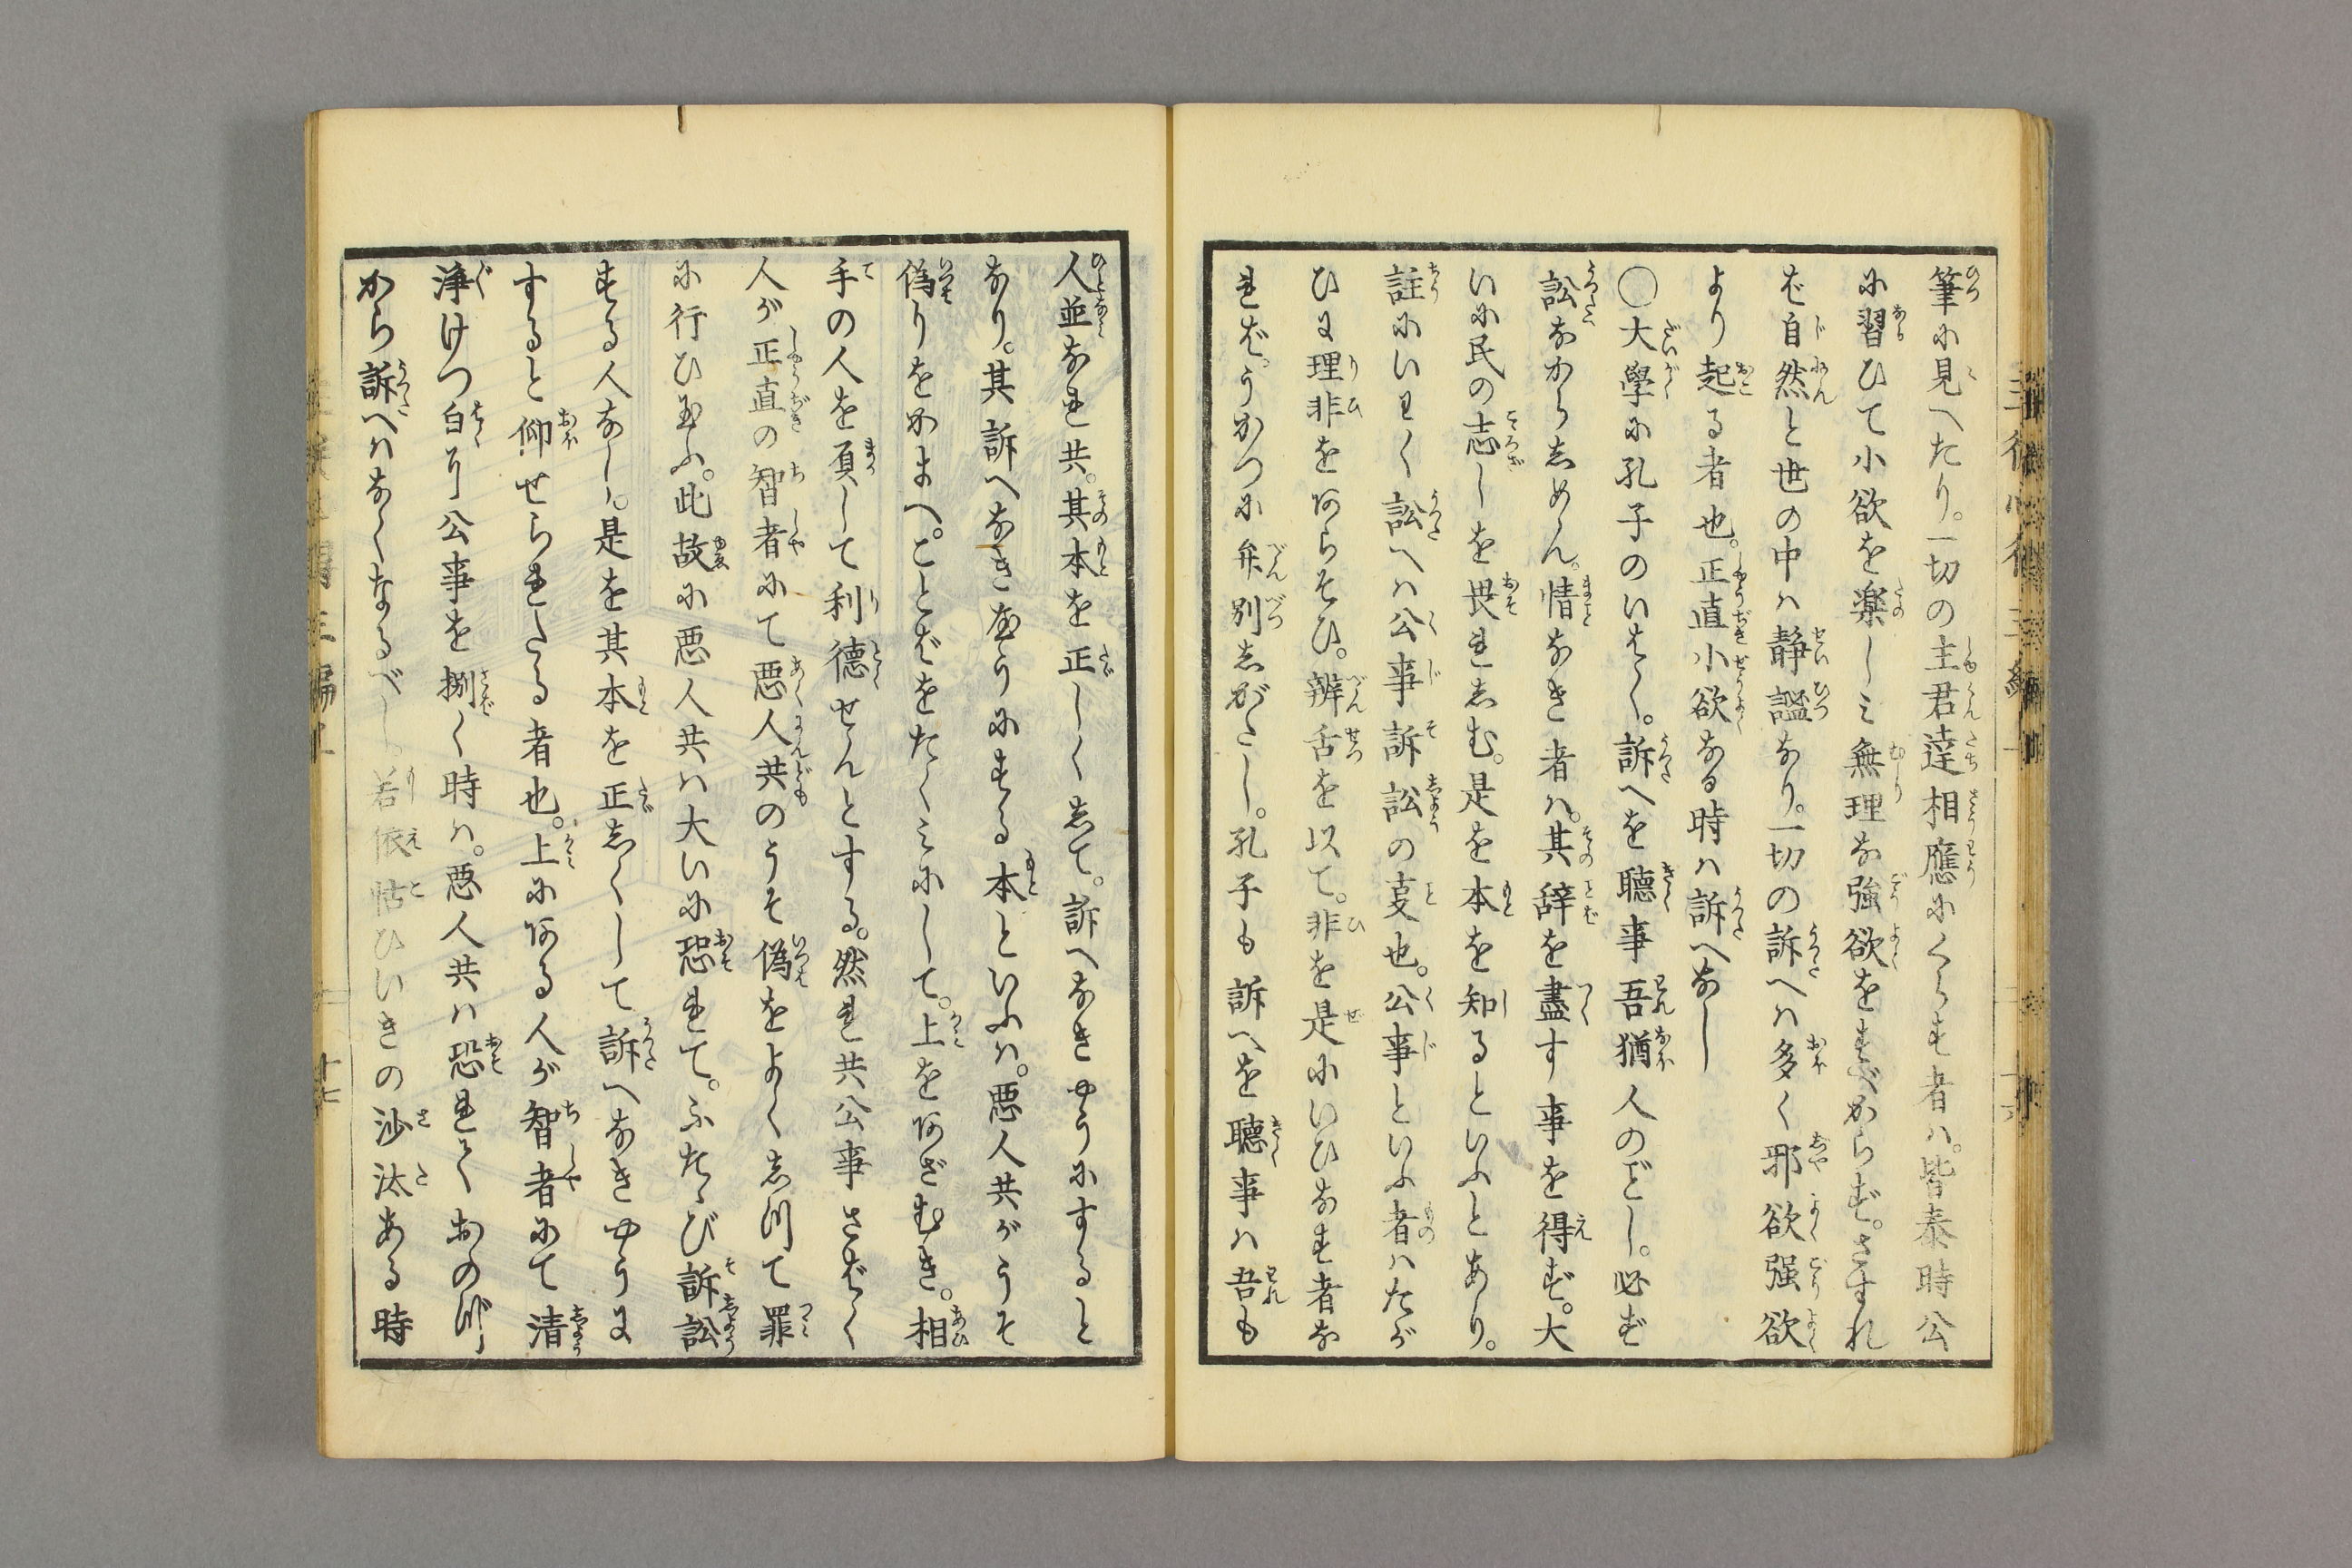 筆に見へたり。一切の主君達相應にくらす者ハ。皆泰時公
に習ひて小欲を楽しミ無理な強欲をすべからず。さすれ
ば自然と世の中ハ静謐なり。一切の訴へハ多く邪欲强欲
より起る者也。正直小欲なる時ハ訴へなし
〇大學に孔子のいはく。訴へを聴事吾猶人のごとし。必ず
訟なからしめん。情なき者ハ。其辞を盡す事を得ず。大
いに民の志しを畏れしむ。是を本を知るといふとあり。
註にいはく訟へハ公事訴訟の叓也。公事といふ者ハたが
ひに理非をあらそひ。辨舌を以て。非を是にいひなす者な
れば。うかつに弁別しがたし。孔子も訴へを聴事ハ吾も
人並なれ共。其本を正しくして。訴へなきやうにすると
なり。其訴へなきやうにする本といふハ。悪人共がうそ
偽りをかまへ。ことばをたくミにして。上をあざむき。相
手の人を負して利徳せんとする。然れ共公事さばく
人が正直の智者にて悪人共のうそ偽をよくしつて罪
に行ひ玉ふ。此故に悪人共ハ大いに恐れて。ふたゝび訴訟
する人なし。是を其本を正しくして訴へなきやうに
すると仰せられたる者也。上にある人が智者にて清
浄けつ白り公事を捌く時ハ。悪人共ハ恐れておのづ
から訴へハなくなるべし。若依怙ひいきの沙汰ある時